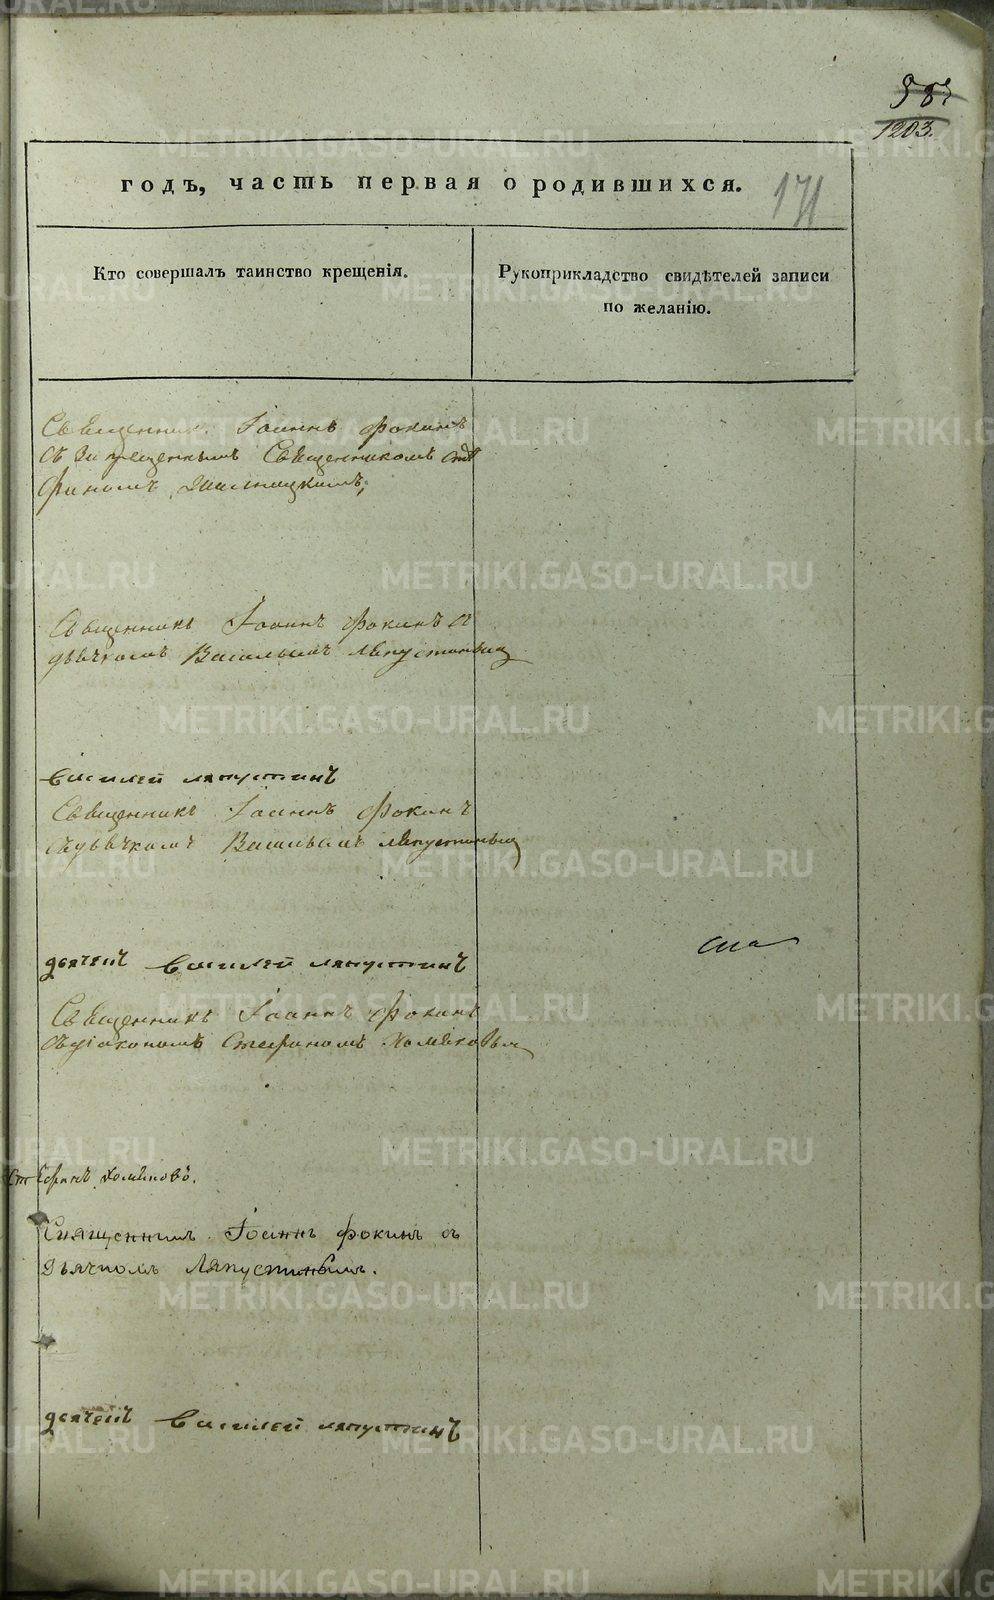 1203.
годъ, часть первая о родившихся.
171
Кто совершалъ таинство крещенія.
Рукоприкладство свидѣтелей записи
по желанію.
Священникъ Іоаннъ Фокинъ
съ Священникомъ
Священникъ Іоаннъ Фокинъ съ
дьячкомъ Васильемъ Ляпустинымъ
Василей Ляпустинъ
Священникъ Іоаннъ Фокинъ
съ дьячкомъ Васильемъ Ляпустинымъ
дьячекъ Василей Ляпустинъ
Священникъ Іоаннъ Фокинъ
съ діакономъ Стефаномъ Хомяковым
Стефанъ Хомяковъ.
Священникъ Іоаннъ Фокинъ съ
Дьячкомъ Ляпустинымъ.
дьячекъ Василей Ляпустинъ
METRIKI.GASO-URAL.RU